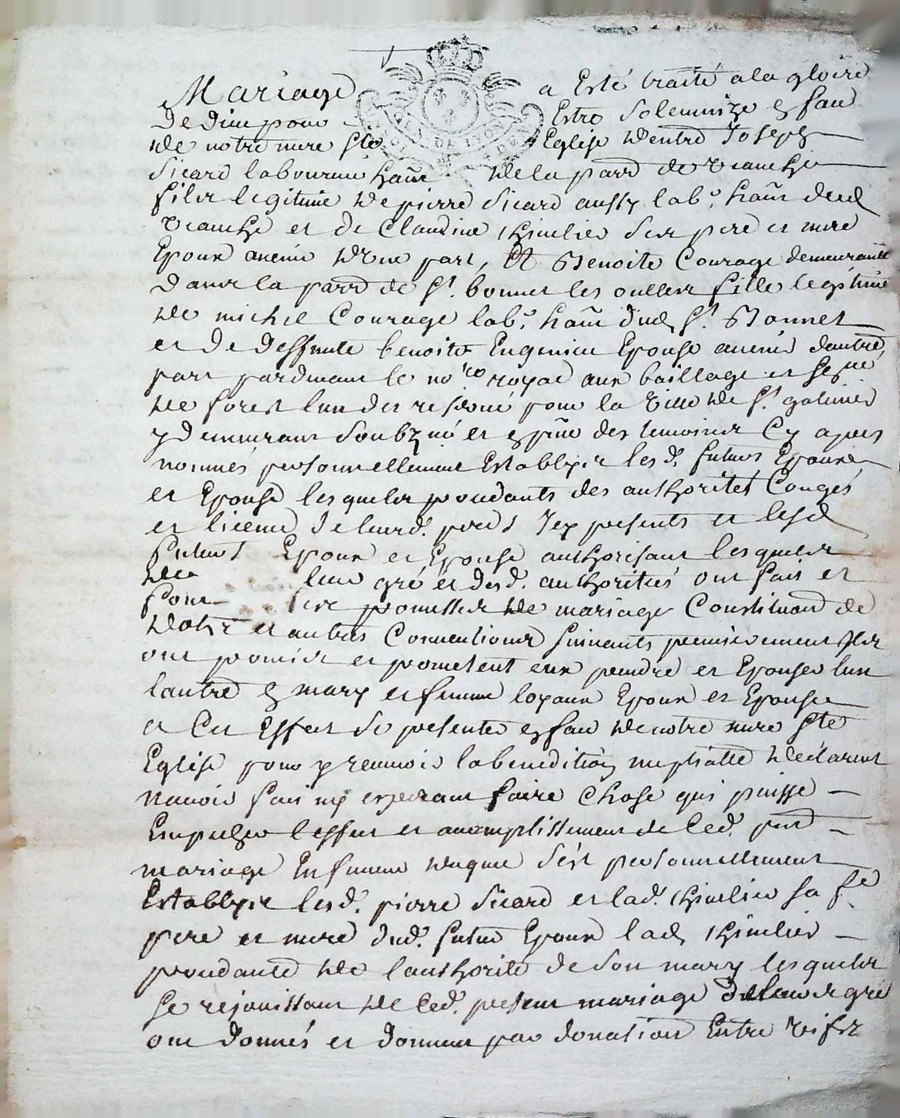 Mariage a Esté traité ala gloire
De dieu pour Estre Solemnizé en face
De notre mere Ste Eglise D'entre Joseph
Sicard laboureur hãnt De la parr de
filz legitime De pierre Sicard aussy lab.r hãnt dud
et de Claudine Thiolier Ses pere et mere
Epoux avenir D'une part, Et Benoite Courage demeurante
Dans la parr de St. bonnet les oulles fille legitime
De michel Courage lab.r hãnt dud St. Bonnet
et de deffunte benoite Epouse avenir dautre
part pardevant le no.re royal aux baillage et
De forest lun des reservé pour la Ville De St. galmier
y demeurant Soubz.né et en pñce des temoins Cy apres
nommés personnellement Establys lesd. futurs Epoux
et Epouse lesquels procedants des authorités Congés
et licence de leurd. peres Icy presents et lesd
futurs Epoux et Epouse authorisant lesquels
De leur gré et desd. authorités ont fait et
font les promesses De mariage Constitution de
Dotz et autres Conventions Suivants premierement Ils
ont promis et prometent eux prendre et Epouser lun
lautre en mary et femme loyaux Epoux et Epouse
et a Cet Effet Se presenter en face De notre mere Ste
Eglise pour y recevoir la benedition nuptialle Declarent
navoir fait ny esperant faire Chose qui puisse
Empecher leffet et accomplissement de Ced. pnt
mariage En faveur duquel Sést personnellement
Establys lesd. pierre Sicard et lad. Thiolier Sa fe
pere et mere dud. futur Epoux lad Thiolier
procedante De l'authorité de Son mary lesquels
Se rejouissant De Ced. present mariage de leur gré
ont donnés et donnent par donation Entre vifs